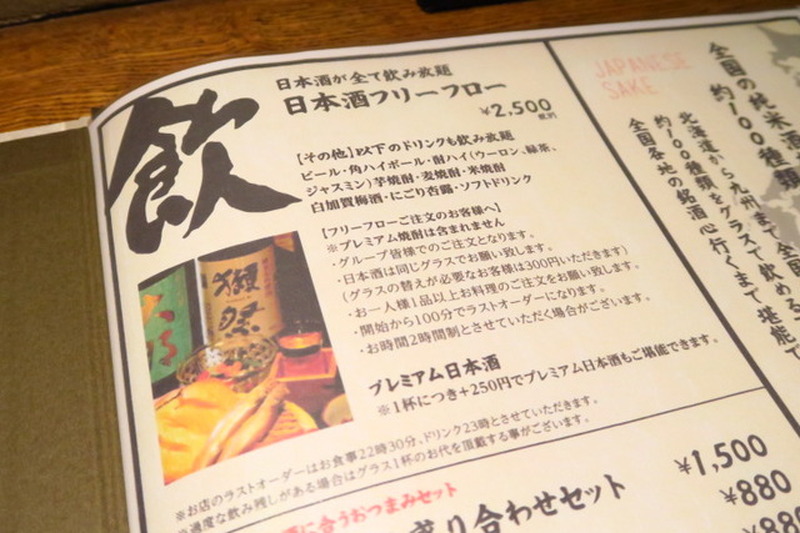 飲
日本酒が全て飲み放題
日本酒フリーフロー
¥2,500
税別
【その他】以下のドリンクも飲み放題
ビール・角ハイボール・酎ハイ(ウーロン、緑茶、
ジャスミン)芋焼酎・麦焼酎・米焼酎
白加賀梅酒・にごり杏露・ソフトドリンク
【フリーフローご注文のお客様へ】
※プレミアム焼酎は含まれません
・グループ皆様でのご注文となります。
・日本酒は同じグラスでお願い致します。
(グラスの替えが必要なお客様は300円いただきます)
・お一人様1品以上お料理のご注文をお願い致します。
・開始から100分でラストオーダーになります。
・お時間2時間制とさせていただく場合がございます。
獺祭
プレミアム日本酒
※1杯につき+250円でプレミアム日本酒もご堪能できます。
※お店のラストオーダーはお食事22時30分、ドリンク23時とさせていただきます。
※過度な飲み残しがある場合はグラス1杯のお代を頂戴する事がございます。
に合うおつまみセット
盛り合わせセット
¥1,500
¥880
JAPANESE
SAKE
全国の純米酒
約100種類
北海道から九州まで全国
約100種類をグラスで飲める
全国各地の銘酒心行くまで堪能